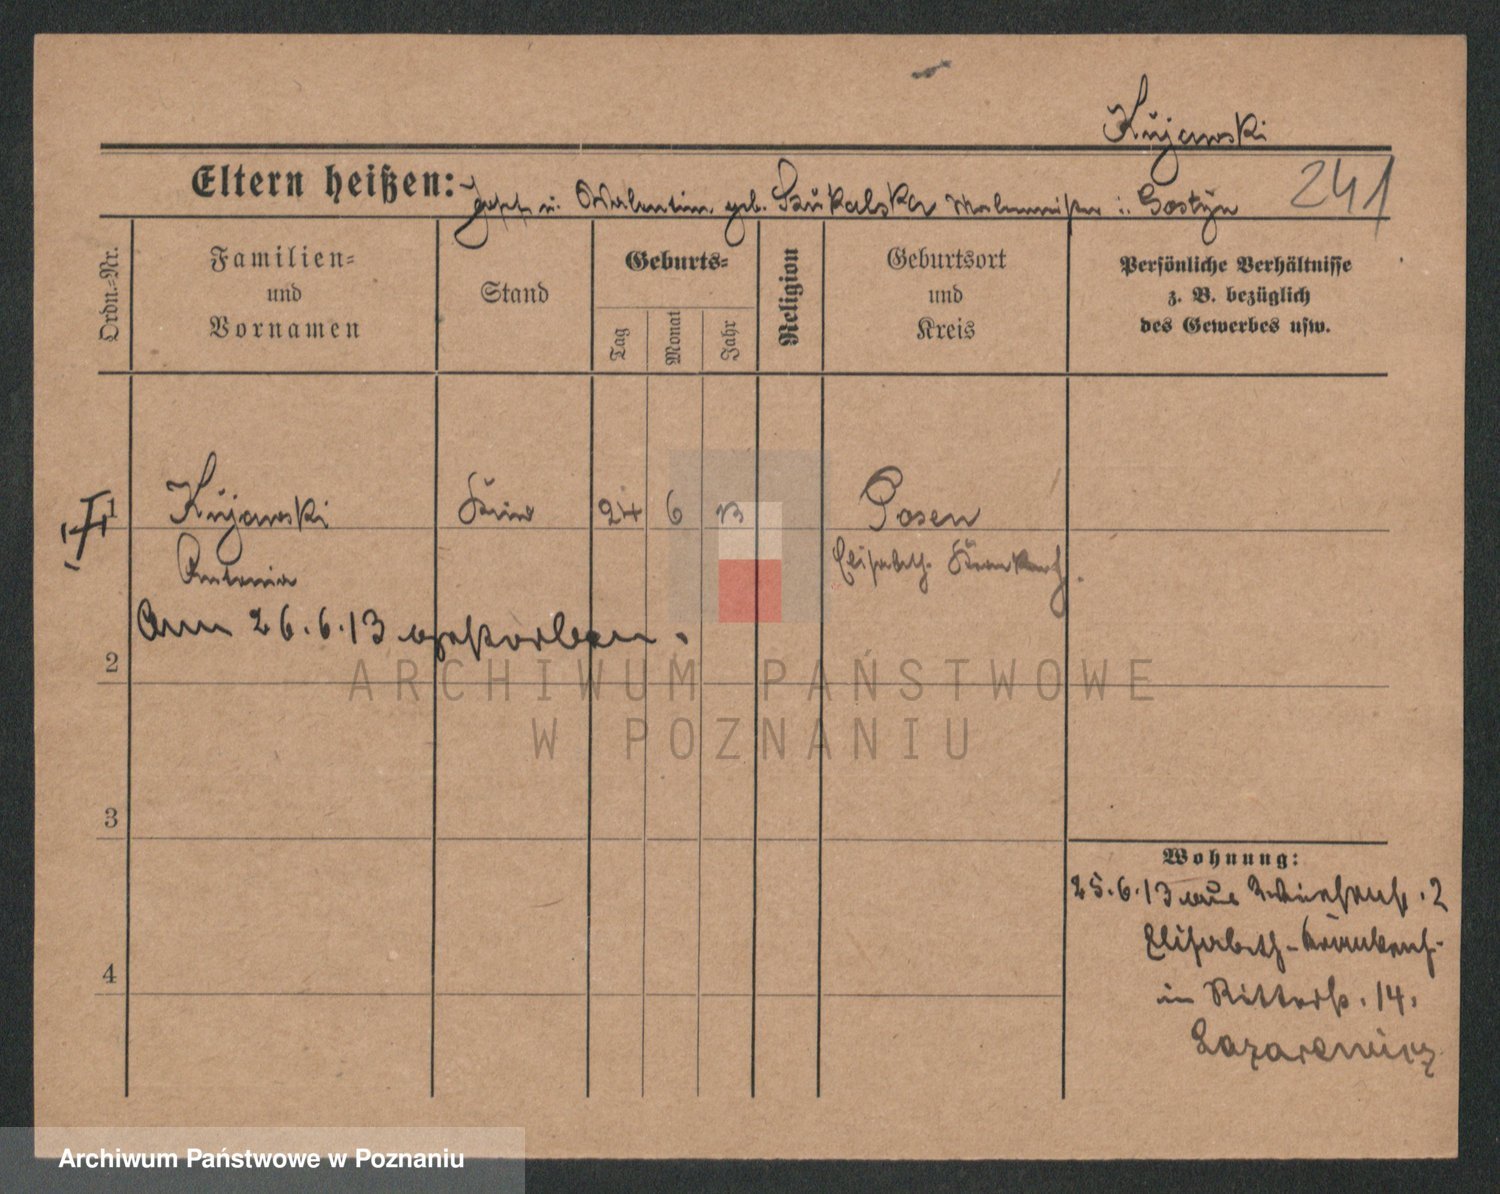 Kujawski
241
Eltern heißen: Joseph u. Valentine geb. Szukalska Malermeister i. Gostyn
Ordn.-Nr.
Familien-
und
Vornamen
Stand
Geburts-
Tag
Monat
Jahr
Religion
Geburtsort
und
Kreis
Persönliche Verhältnisse
z. B. bezüglich
des Gewerbes usw.
1 Kujawski Kind 24 6 13 Posen
Antonia Elisabeth Krankenh.
Am 26.6.13 verstorben.
2
3
4
Wohnung:
25.6.13 aus 2
Elisabeth-Krankenh.
in Ritterstr. 14.
Lazarewicz
ARCHIWUM PAŃSTWOWE
W POZNANIU
Archiwum Państwowe w Poznaniu